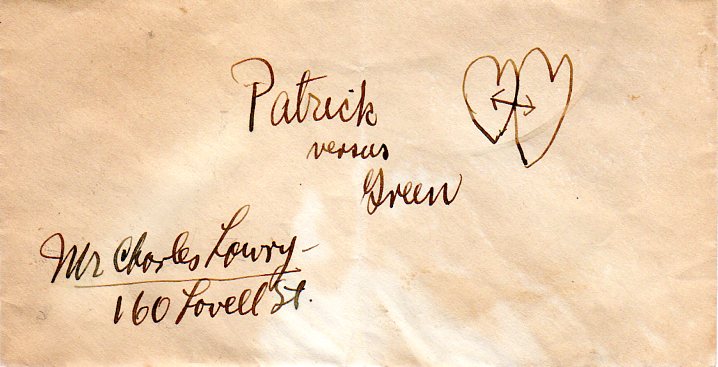 Patrick
versus
Green
Mr Charles Lowry
160 Lovell St.